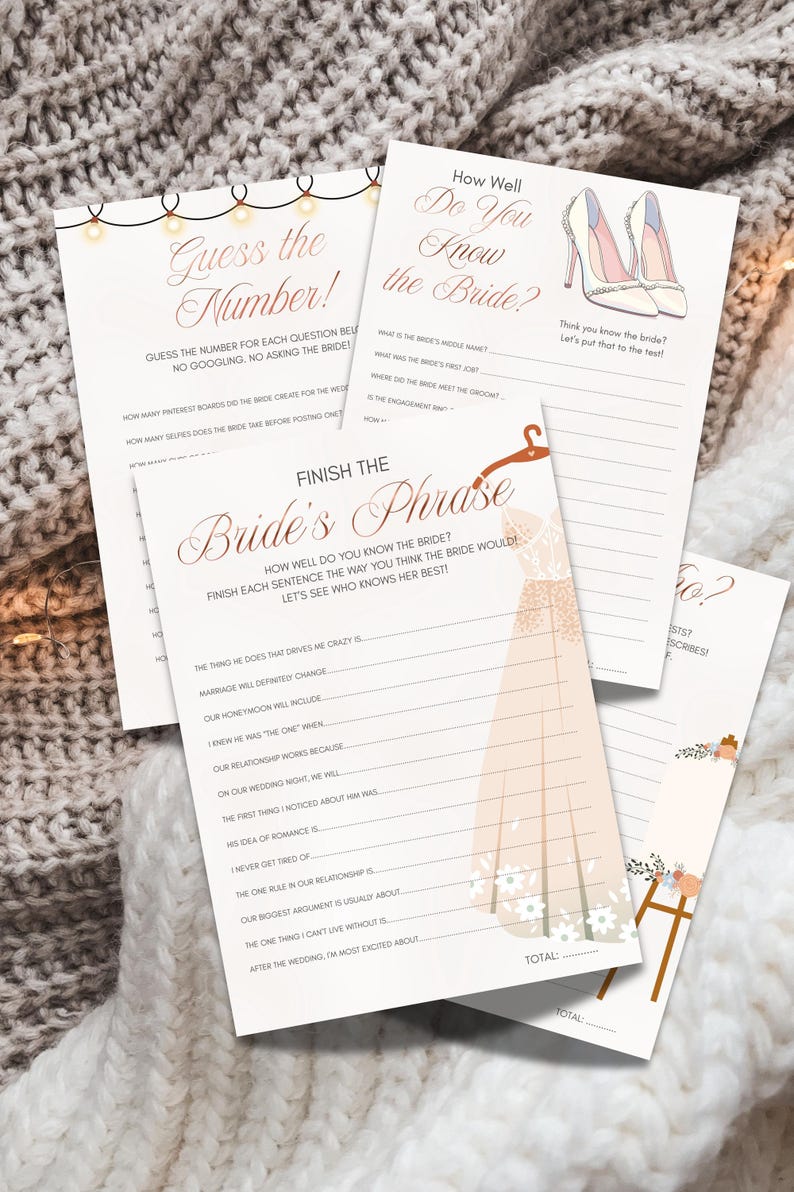 Guess the
Number!
GUESS THE NUMBER FOR EACH QUESTION
NO GOOGLING. NO ASKING THE BRIDE!
HOW MANY PINTEREST BOARDS DID THE BRIDE CREATE FOR THE
HOW MANY SELFIES DOES THE BRIDE TAKE BEFORE POSTING ONE?
HOW MANY
How Well
Do You
Know
the Bride?
Think you know the bride?
Let's put that to the test!
WHAT IS THE BRIDE'S MIDDLE NAME?
WHAT WAS THE BRIDE'S FIRST JOB?
WHERE DID THE BRIDE MEET THE GROOM?
IS THE ENGAGEMENT RING
FINISH THE
Bride's Phrase
HOW WELL DO YOU KNOW THE BRIDE?
FINISH EACH SENTENCE THE WAY YOU THINK THE BRIDE WOULD!
LET'S SEE WHO KNOWS HER BEST!
THE THING HE DOES THAT DRIVES ME CRAZY IS
MARRIAGE WILL DEFINITELY CHANGE
OUR HONEYMOON WILL INCLUDE
I KNEW HE WAS "THE ONE" WHEN
OUR RELATIONSHIP WORKS BECAUSE
ON OUR WEDDING NIGHT, WE WILL
THE FIRST THING I NOTICED ABOUT HIM WAS
HIS IDEA OF ROMANCE IS
I NEVER GET TIRED OF
THE ONE RULE IN OUR RELATIONSHIP IS
OUR BIGGEST ARGUMENT IS USUALLY ABOUT
THE ONE THING I CAN'T LIVE WITHOUT IS
AFTER THE WEDDING, I'M MOST EXCITED ABOUT
TOTAL: ............
TOTAL: ............